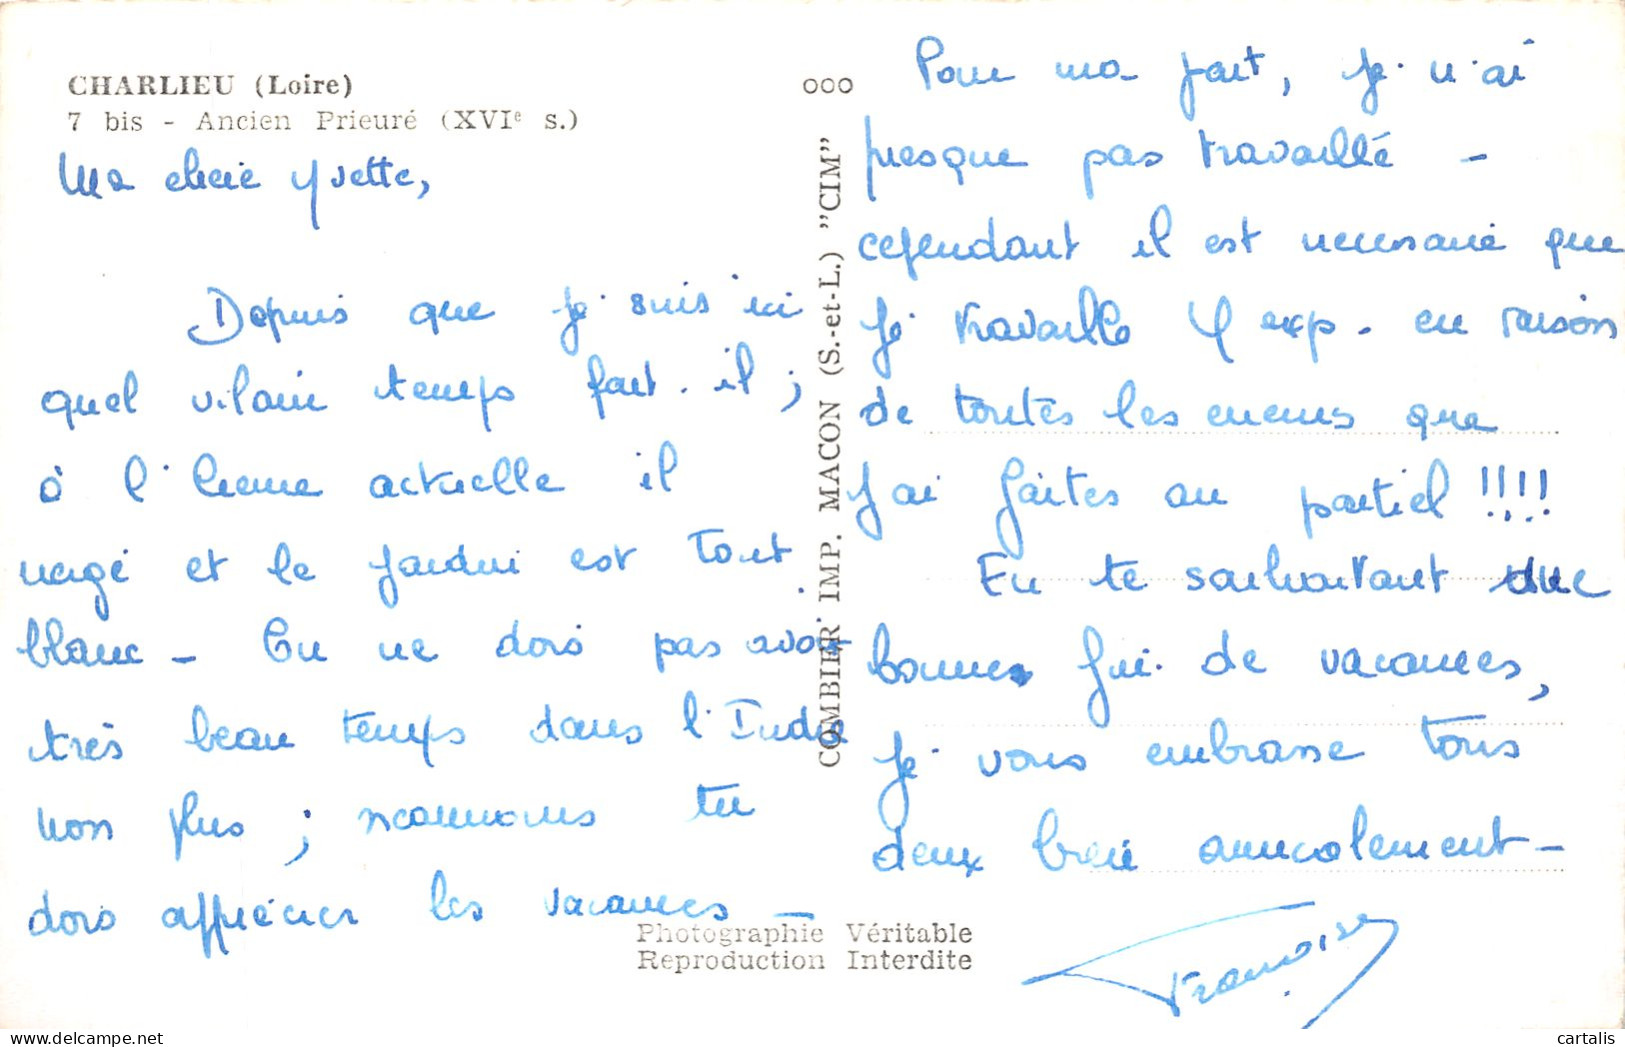 CHARLIEU (Loire)
7 bis - Ancien Prieuré (XVIᵉ s.)
Ma chérie Yvette,
Depuis que je suis ici
quel vilain temps fait-il ;
à l'heure actuelle il
neige et le jardin est tout
blanc - Tu ne dois pas avoir
très beau temps dans l'Indre
non plus ; néanmoins tu
dois apprécier les vacances -
OOO
COMBIER IMP. MACON (S.-et-L.) "CIM"
Pour ma part, je n'ai
presque pas travaillé -
cependant il est necessaire que
je travaille 4 exp. en raison
de toutes les erreurs que
j'ai faites au partiel !!!!
En te souhaitant une
bonnes fin de vacances,
je vous embrasse tous
deux bien amicalement -
Françoise
Photographie Véritable
Reproduction Interdite
cartalis